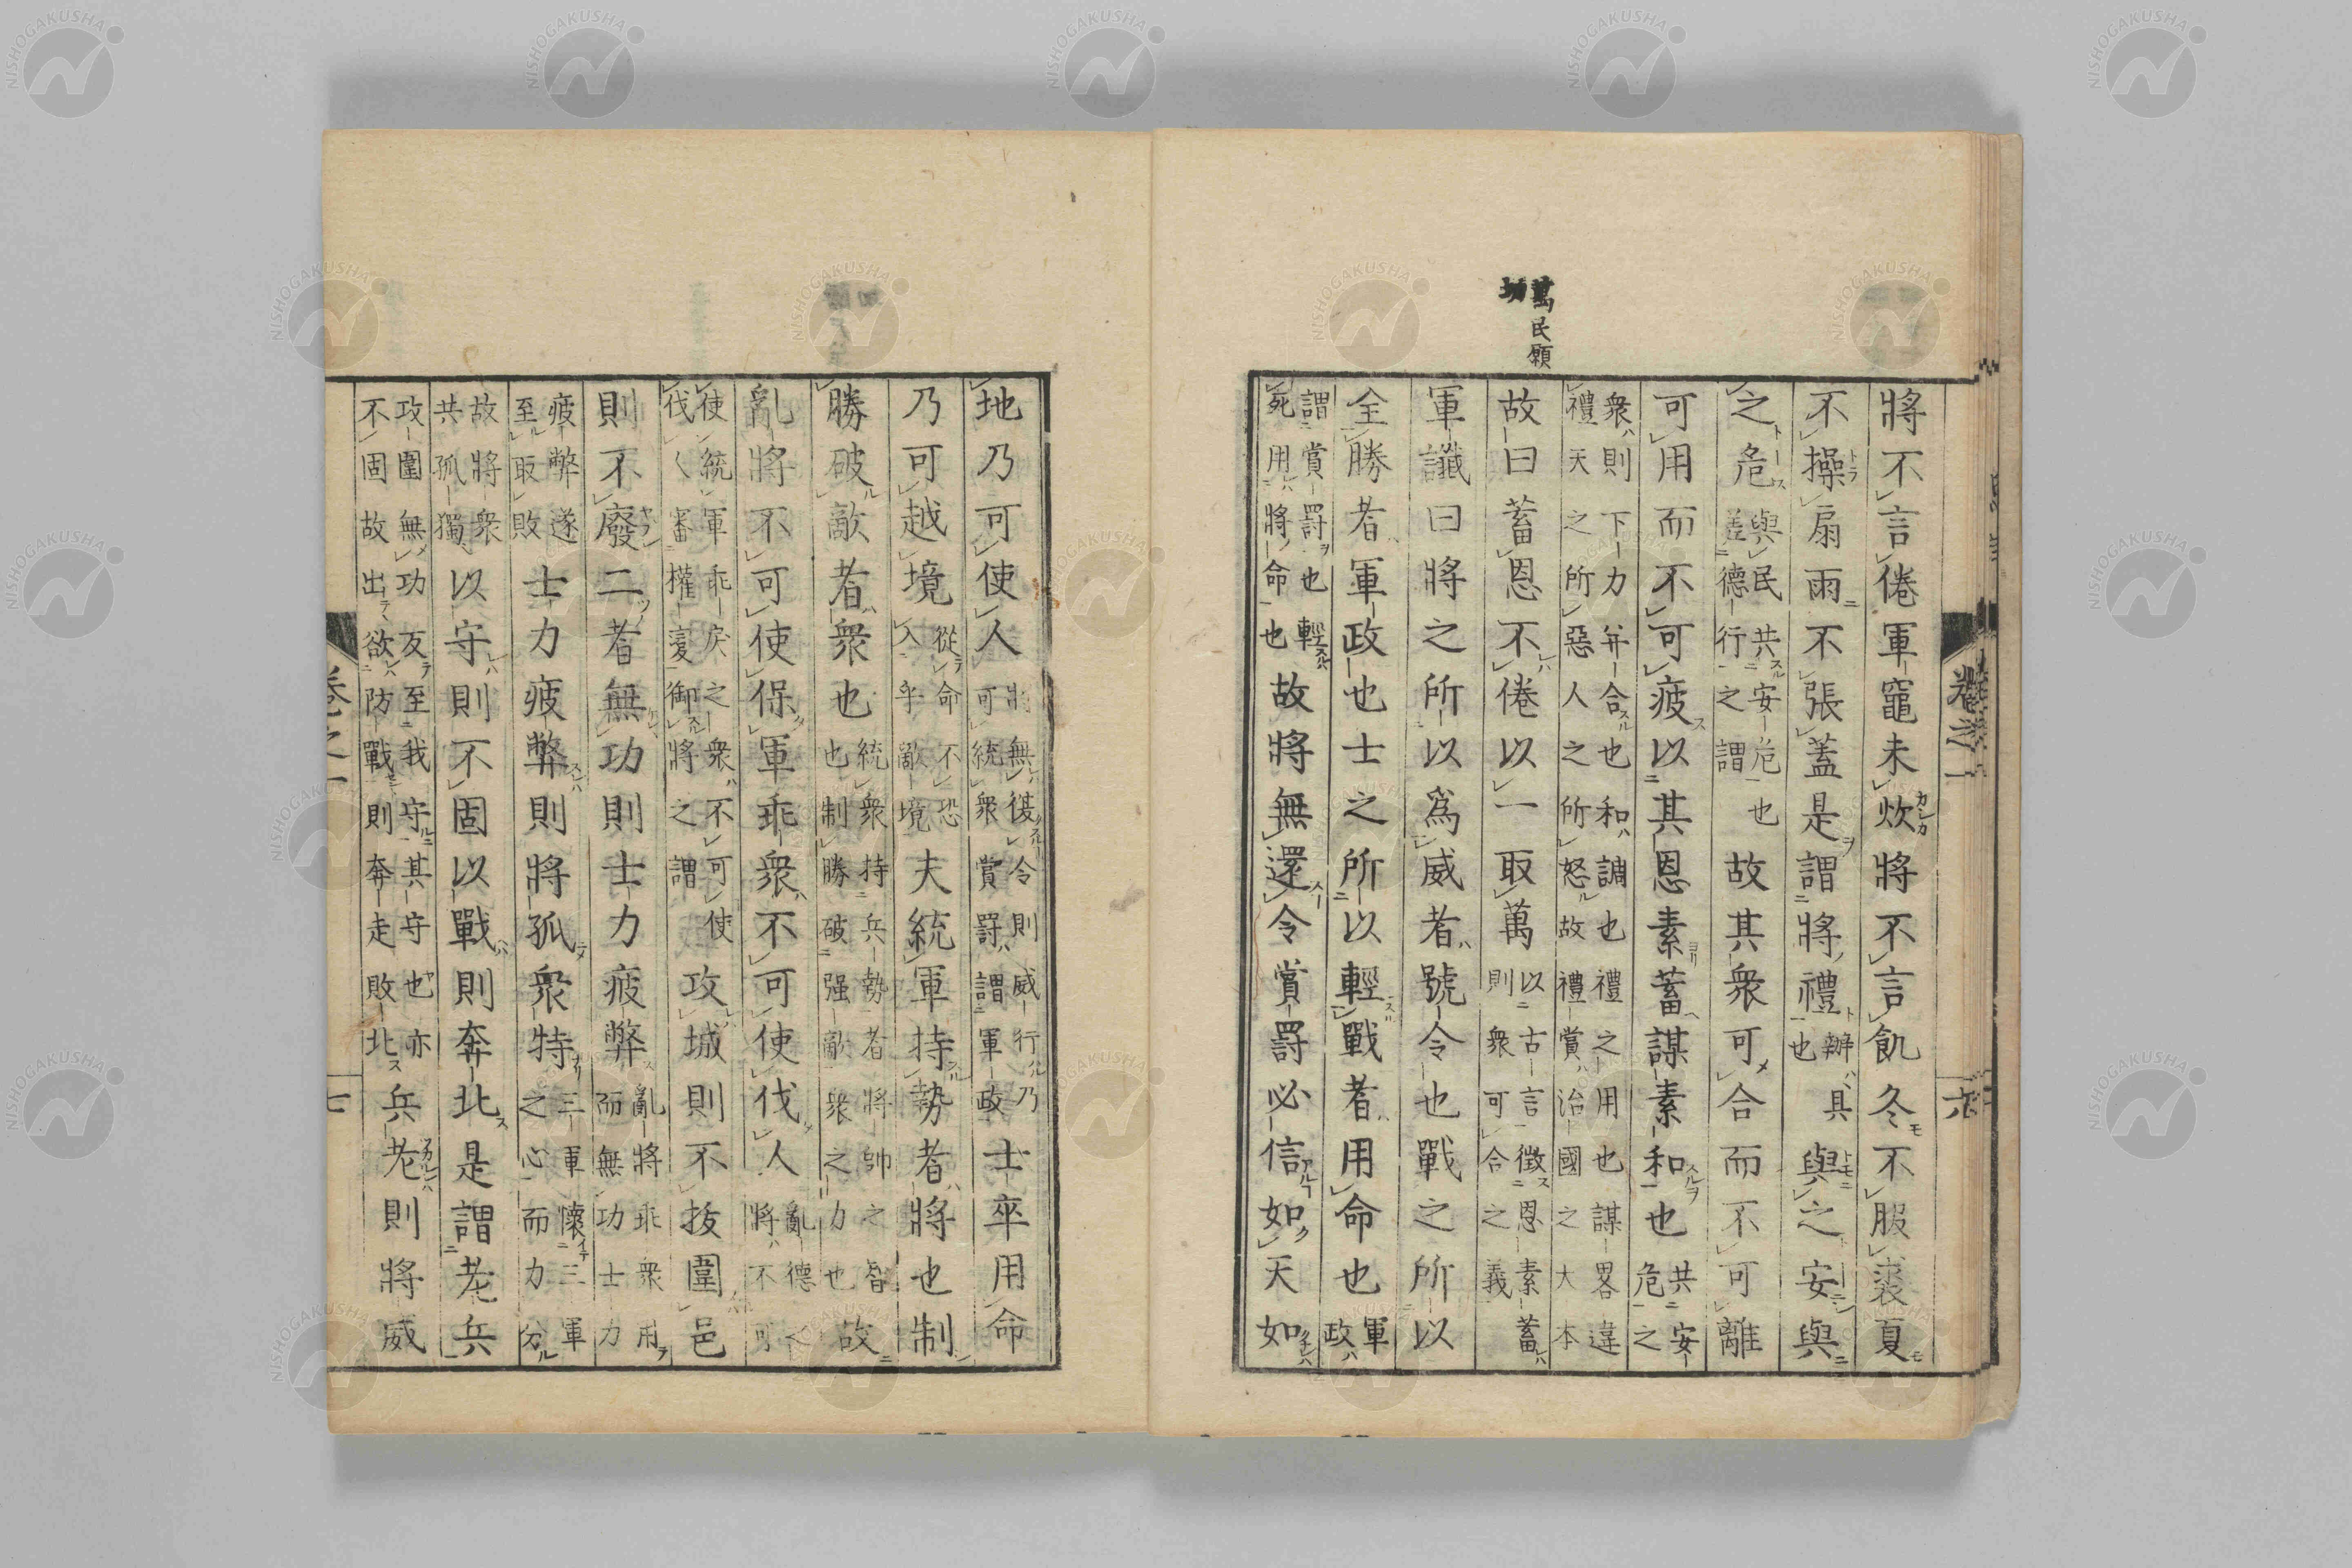 萬民願
將不言倦軍竈未炊將不言飢冬不服裘夏
不操扇雨不張蓋是謂將禮辦具也與之安與
之危與民共安危也差德行之謂故其衆可合而不可離
可用而不可疲以其恩素蓄謀素和也共安危之
衆則下力并合也和調也禮之用也謀畧違
禮天之所惡人之所怒故禮賞治國之大本
故曰蓄恩不倦以一取萬以古言徴恩素蓄則衆可合之義
軍讖曰將之所以爲威者號令也戰之所以
全勝者軍政也士之所以輕戰者用命也軍政
謂賞罰也輕死用將命也故將無還令賞罰必信如天如
卷之一
六
地乃可使人將無復令則威行乃可統衆賞罰謂軍政士卒用命
乃可越境從命不恐入乎敵境夫統軍持勢者將也制
勝破敵者衆也統衆持兵勢者將帥之智也制勝破强敵衆之力也故
亂將不可使保軍乖衆不可使伐人亂德之將不可
使統軍乖戻之衆不可使伐人審權變御將之謂攻城則不拔圍邑
則不廢二者無功則士力疲弊亂將乖衆用而無功士力
疲弊遂至取敗士力疲弊則將孤衆特三軍懷三軍之心而力分
故將衆共孤獨以守則不固以戰則奔北是謂老兵
攻圍無功反至我守其守也亦不固故出欲防戰則奔走敗北兵老則將威
卷之一
七